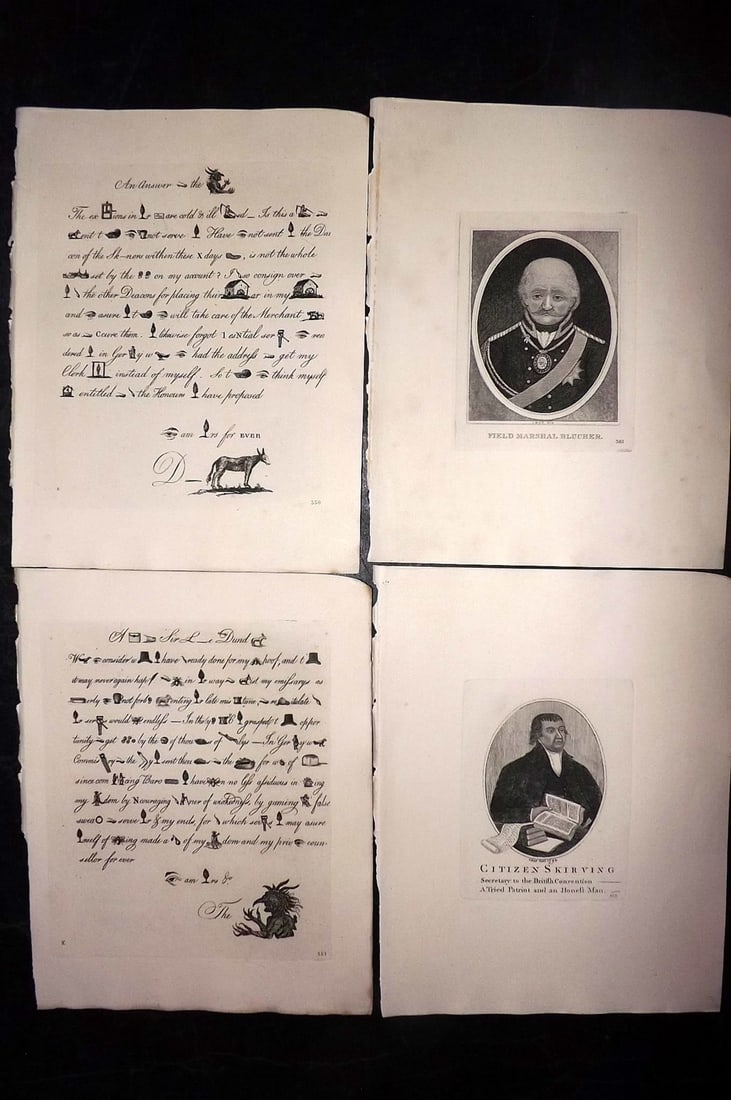 An Answer the
The ex ions in r are cold & ill sed — Is this a
ent t not serve Have not sent the Dea
con of the Sh—ners within these X days , is not the whole
set by the on my account? I so consign over
the other Deacons for placing their ar in my
and asure t will take care of the Merchant
so as cure them. likewise forgot sential ser ren
dered in Ger y w had the address get my
Clerk instead of myself. So t think myself
entitled the Honours have proposed
am rs for EVER
D—
550
FIELD MARSHAL BLUCHER.
A Sir L—e Dund
W consider w have ready done for my hoof, and t
it may never again hap in r way st my emissarys as
erly not forb enting r late mis tune, re late
r ser would endless — In the grasped t oppor
tunity get by the of thou of lys — In Ger y w
Commis ry the y sent then as the for w of
since com cing Baro have n no less assiduous in ing
my dom by Ncouraging ner of wickedness, by gaming false
swea serve r & my ends, for which ser may asure
rself of ing made a of my dom and my priv coun-
sellor for ever
am rs &c
The
K
551
CITIZEN SKIRVING
Secretary to the British Convention
A Tried Patriot and an Honest Man.